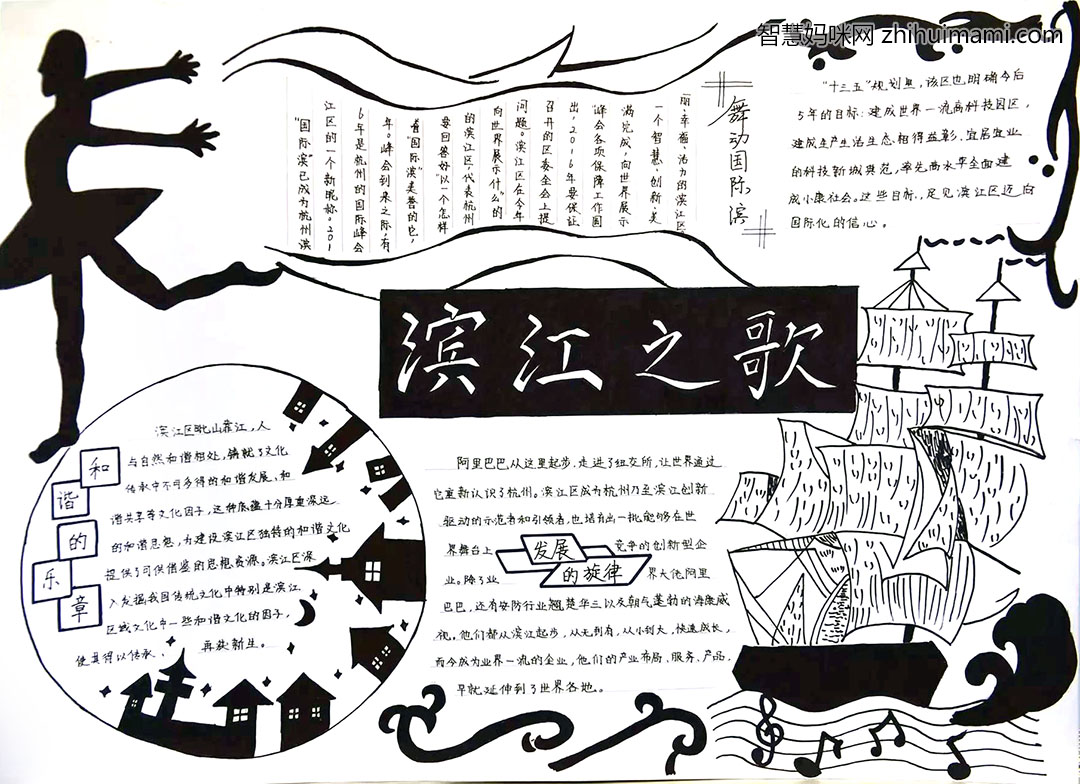 智慧妈咪网 zhihuimami.com
舞动国际滨
“国际滨”已成为杭州滨
江区的一个新昵称。201
6年是杭州的国际峰会
年。峰会到来之际,有
着“国际滨”美誉的它,
要回答好“以一个怎样
的滨江区,代表杭州
向世界展示什么”的
问题。滨江区在今年
召开的区委全会上提
出,2016年要保证
峰会各项保障工作圆
满完成,向世界展示
一个智慧、创新、美
丽、幸福、活力的滨江区
“十三五”规划里,该区也明确今后
5年的目标:建成世界一流高科技园区,
建成生产生活生态相得益彰、宜居宜业
的科技新城典范,率先高水平全面建
成小康社会。这些目标,足见滨江区迈向
国际化的信心。
滨江之歌
和谐的乐章
滨江区毗山靠江,人
与自然和谐相处,铸就了文化
传承中不可多得的和谐发展、和
谐共享等文化因子,这种底蕴十分厚重深远
的和谐思想,为建设滨江区独特的和谐文化
提供了可供借鉴的思想资源。滨江区深
入发掘我国传统文化中特别是滨江
区域文化中一些和谐文化的因子,
使其得以传承、再获新生。
阿里巴巴,从这里起步,走进了纽交所,让世界通过
它重新认识了杭州。滨江区成为杭州乃至滨江创新
驱动的示范者和引领者,也培育出一批能够在世
界舞台上竞争的创新型企
发展
的旋律
业。除了业界大佬阿里
巴巴,还有安防行业翘楚华三以及朝气蓬勃的海康威
视。他们都从滨江起步,从无到有,从小到大,快速成长,
而今成为业界一流的企业,他们的产业布局、服务、产品,
早就延伸到了世界各地。